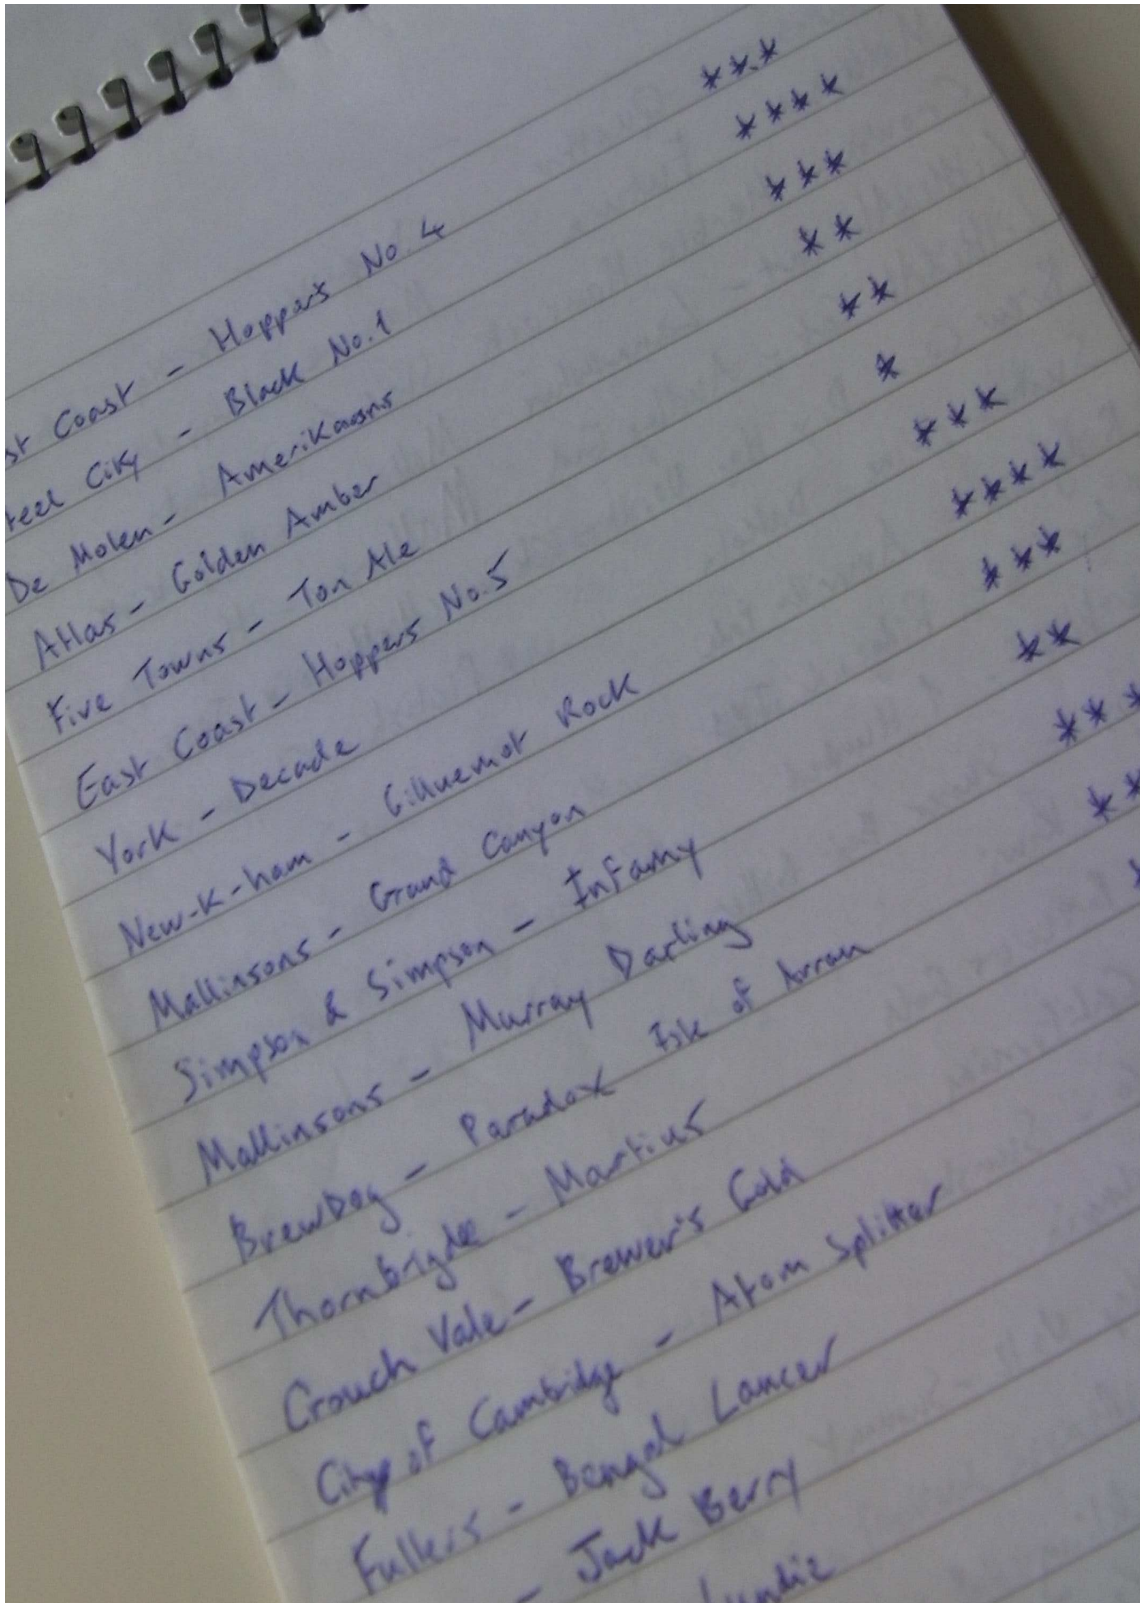 st Coast - Hoppers No.4 ***
teel City - Black No.1 ****
De Molen - Amerikaans ***
Atlas - Golden Amber **
Five Towns - Ton Ale **
East Coast - Hoppers No.5 *
York - Decade ***
New-K-ham - Gilluemot Rock ****
Mallinsons - Grand Canyon ***
Simpson & Simpson - Infamy **
Mallinsons - Murray Darling ***
BrewDog - Paradox Isle of Arran **
Thornbrigde - Martius *
Crouch Vale - Brewer's Gold
City of Cambridge - Atom Splitter
Fullers - Bengal Lancer
- Jack Berry